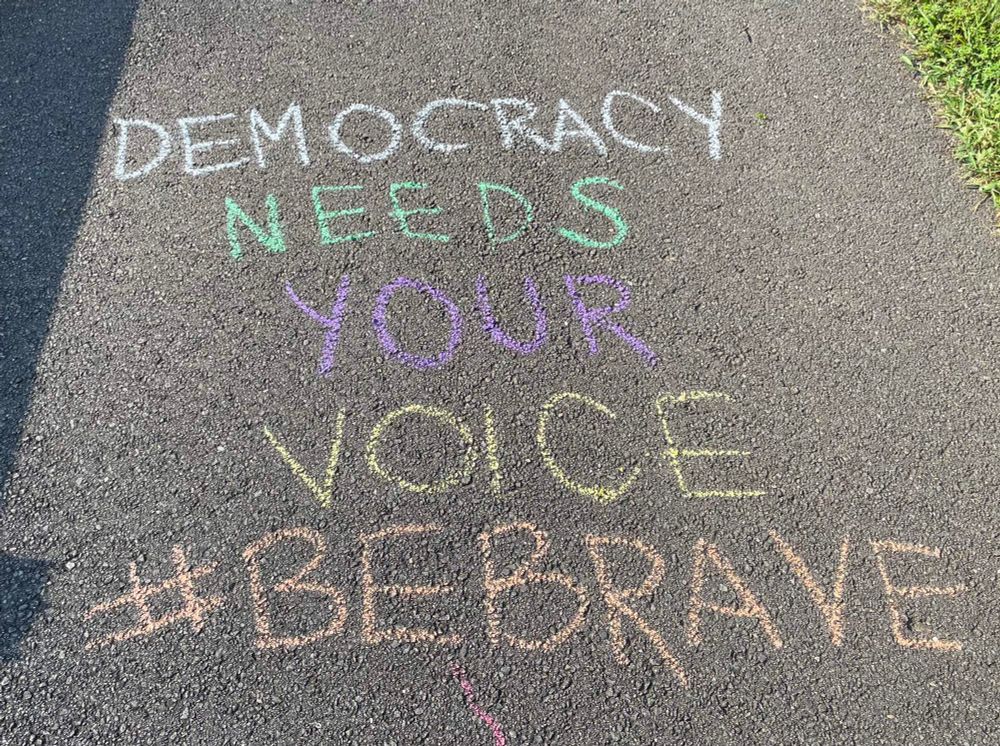 DEMOCRACY
NEEDS
YOUR
VOICE
#BEBRAVE